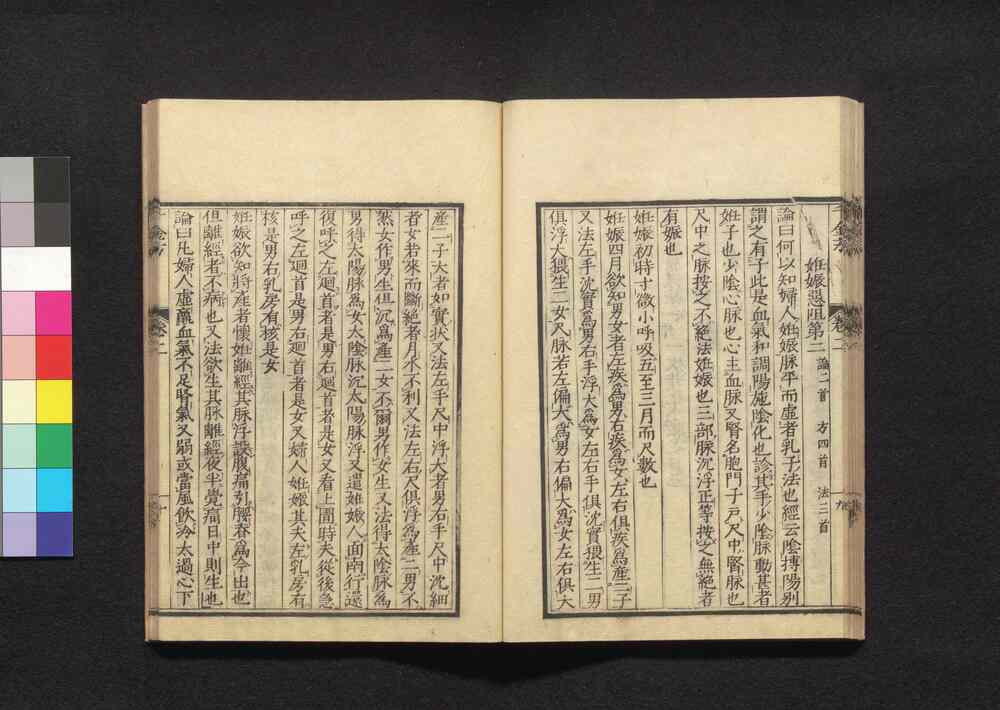 妊娠惡阻第二 論二首 方四首 法三首
論曰何以知婦人妊娠脉平而虛者乳子法也經云陰搏陽別
謂之有子此是血氣和調陽施陰化也診其手少陰脉動甚者
妊子也少陰心脉也心主血脉又腎名胞門子戶尺中腎脉也
尺中之脉按之不絕法妊娠也三部脉沉浮正等按之無絕者
有娠也
妊娠初時寸微小呼吸五至三月而尺數也
妊娠四月欲知男女者左疾爲男右疾爲女左右俱疾爲產二子
又法左手沈實爲男右手浮大爲女左右手俱沈實猥生二男
俱浮大猥生二女尺脉若左偏大爲男右偏大爲女左右俱大
產二子大者如實狀又法左手尺中浮大者男右手尺中沈細
者女若來而斷絕者月水不利又法左右尺俱浮爲產二男不
然女作男生俱沉爲產二女不爾男作女生又法得太陰脉爲
男得太陽脉爲女太陰脉沉太陽脉浮又遣妊娠人面南行還
復呼之左迴首者是男右迴首者是女又看上圊時夫從後急
呼之左迴首是男右迴首者是女又婦人妊娠其夫左乳房有
核是男右乳房有核是女
妊娠欲知將產者懷妊離經其脉浮設腹痛引腰脊爲今出也
但離經者不病也又法欲生其脉離經夜半覺痛日中則生也
論曰凡婦人虛羸血氣不足腎氣又弱或當風飲冷太過心下